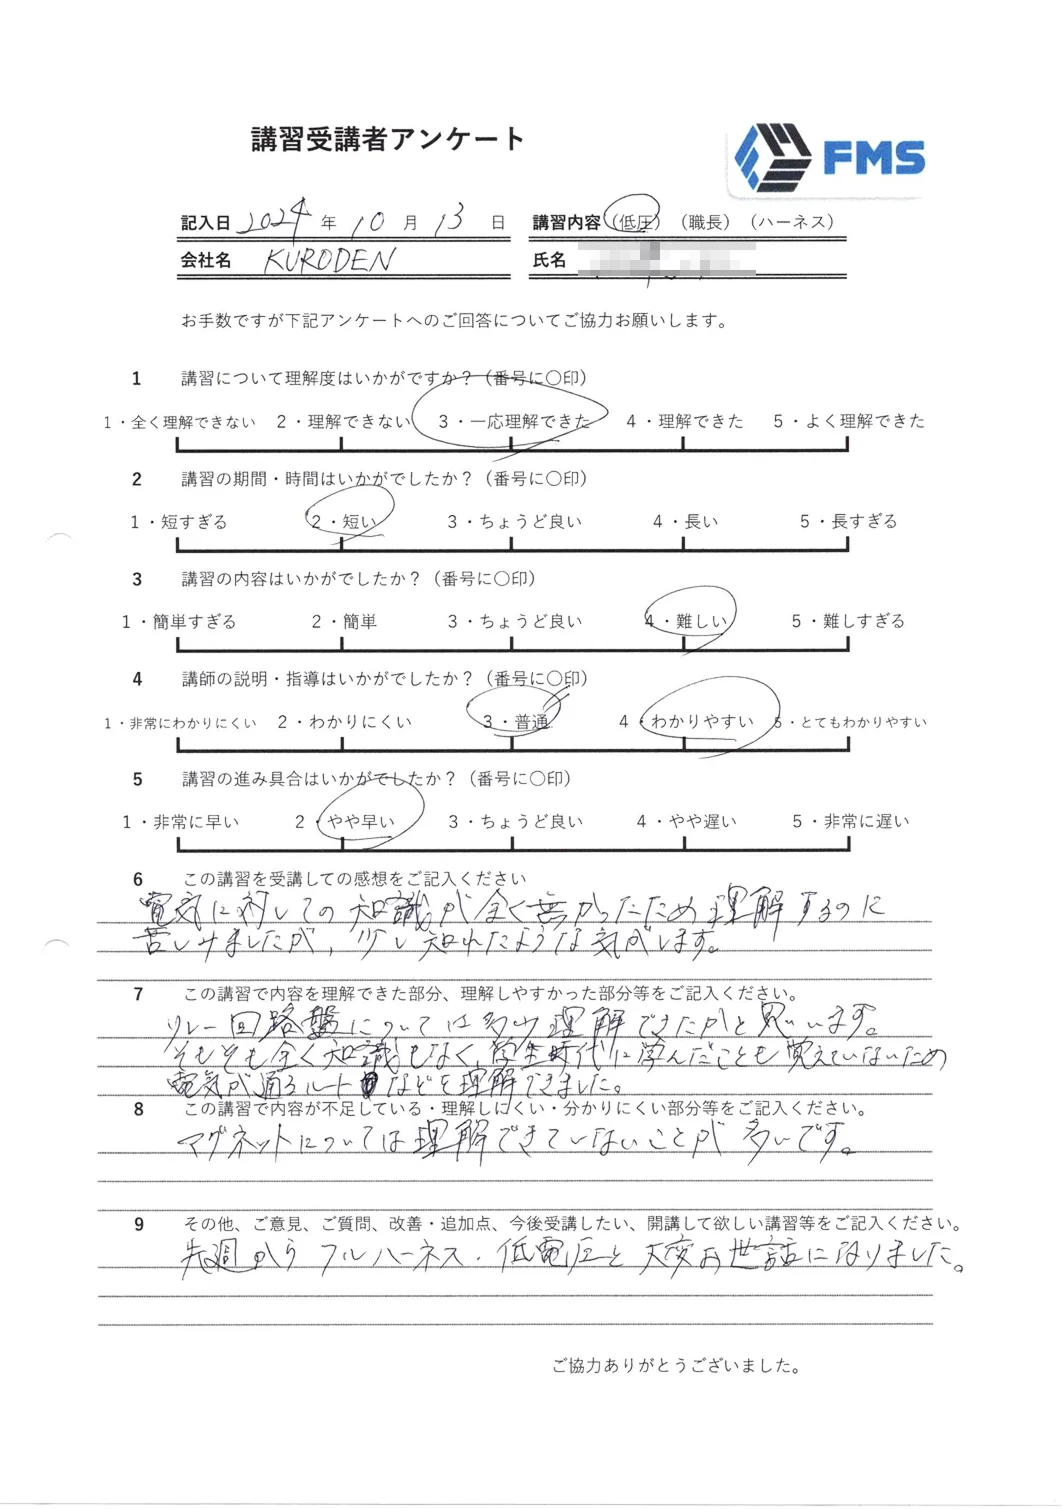 講習受講者アンケート
FMS
記入日 2024 年 10 月 13 日 講習内容 (低圧) (職長) (ハーネス)
会社名 KURODEN 氏名
お手数ですが下記アンケートへのご回答についてご協力お願いします。
1 講習について理解度はいかがですか？(番号に〇印)
1・全く理解できない 2・理解できない 3・一応理解できた 4・理解できた 5・よく理解できた
2 講習の期間・時間はいかがでしたか？(番号に〇印)
1・短すぎる 2・短い 3・ちょうど良い 4・長い 5・長すぎる
3 講習の内容はいかがでしたか？(番号に〇印)
1・簡単すぎる 2・簡単 3・ちょうど良い 4・難しい 5・難しすぎる
4 講師の説明・指導はいかがでしたか？(番号に〇印)
1・非常にわかりにくい 2・わかりにくい 3・普通 4・わかりやすい 5・とてもわかりやすい
5 講習の進み具合はいかがでしたか？(番号に〇印)
1・非常に早い 2・やや早い 3・ちょうど良い 4・やや遅い 5・非常に遅い
6 この講習を受講しての感想をご記入ください
電気に対しての知識が全く無かったため理解するのに
苦しみましたが、少し知れたような気がします。
7 この講習で内容を理解できた部分、理解しやすかった部分等をご記入ください。
リレー回路盤については多少理解できたかと思います。
そもそも全く知識もなく、学生時代に学んだことも覚えていないため
電気が通るルートなどを理解できました。
8 この講習で内容が不足している・理解しにくい・分かりにくい部分等をご記入ください。
マグネットについては理解できていないことが多いです。
9 その他、ご意見、ご質問、改善・追加点、今後受講したい、開講して欲しい講習等をご記入ください。
先週からフルハーネス・低電圧と大変お世話になりました。
ご協力ありがとうございました。